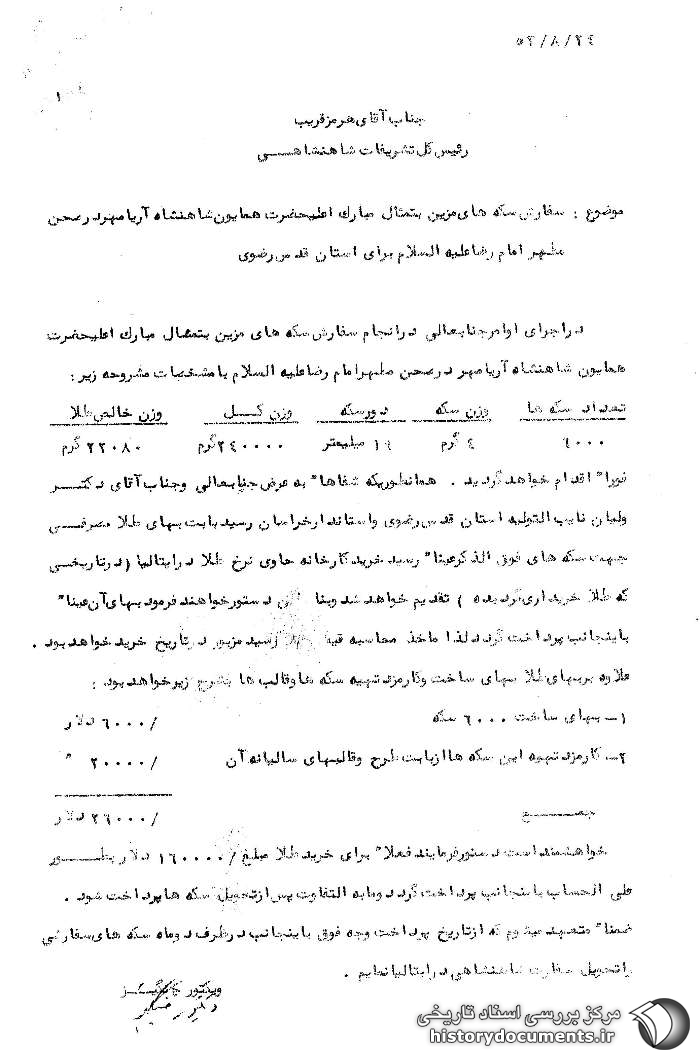 ۵۳/۸/۲۴
۱
جناب آقای هرمز قریب
رئیس کل تشریفات شاهنشاهی
موضوع : سفارش سکه های مزین بتمثال مبارك اعلیحضرت همایون شاهنشاه آریامهر در صحن
مطهر امام رضا علیه السلام برای استان قدس رضوی
در اجرای اوامر جنابعالی در انجام سفارش سکه های مزین بتمثال مبارك اعلیحضرت
همایون شاهنشاه آریامهر در صحن مطهر امام رضا علیه السلام با مشخصات مشروحه زیر :
تعداد سکه ها وزن سکه دور سکه وزن کل وزن خالص طلا
۶۰۰۰ ۴ گرم ۱۹ میلیمتر ۲۴۰۰۰۰ گرم ۲۲۰۸۰ گرم
فورا" اقدام خواهد گردید . همانطوریکه شفاها" به عرض جنابعالی و جناب آقای دکتر
ولیان نایب التولیه استان قدس رضوی و استاندار خراسان رسید بابت بهای طلا مصرفی
جهت سکه های فوق الذکر عینا" رسید خرید کارخانه حاوی نرخ طلا در ایتالیا ( در تاریخی
که طلا خریداری گردیده ) تقدیم خواهد شد و بنا دستور خواهند فرمود بهای آن عینا"
باینجانب پرداخت گردد لذا ماخذ محاسبه رسید مزبور در تاریخ خرید خواهد بود .
علاوه بر بهای طلا بهای ساخت و کارمزد تهیه سکه ها و قالب ها بشرح زیر خواهد بود :
۱- بهای ساخت ۶۰۰۰ سکه /۶۰۰۰ دلار
۲- کارمزد تهیه این سکه ها از بابت طرح و قالبهای سالیانه آن /۲۰۰۰۰ "
جمع /۲۶۰۰۰ دلار
خواهشمند است دستور فرمایند فعلا" برای خرید طلا مبلغ /۱۶۰۰۰۰ دلار بطور
علی الحساب باینجانب پرداخت گردد و مابه التفاوت پس از تحویل سکه ها پرداخت شود .
ضمنا" متعهد میشوم که از تاریخ پرداخت وجه فوق باینجانب در ظرف دو ماه سکه های سفارشی
را تحویل سفارت شاهنشاهی در ایتالیا نمایم .
ویکتور
مرکز بررسی اسناد تاریخی
historydocuments.ir